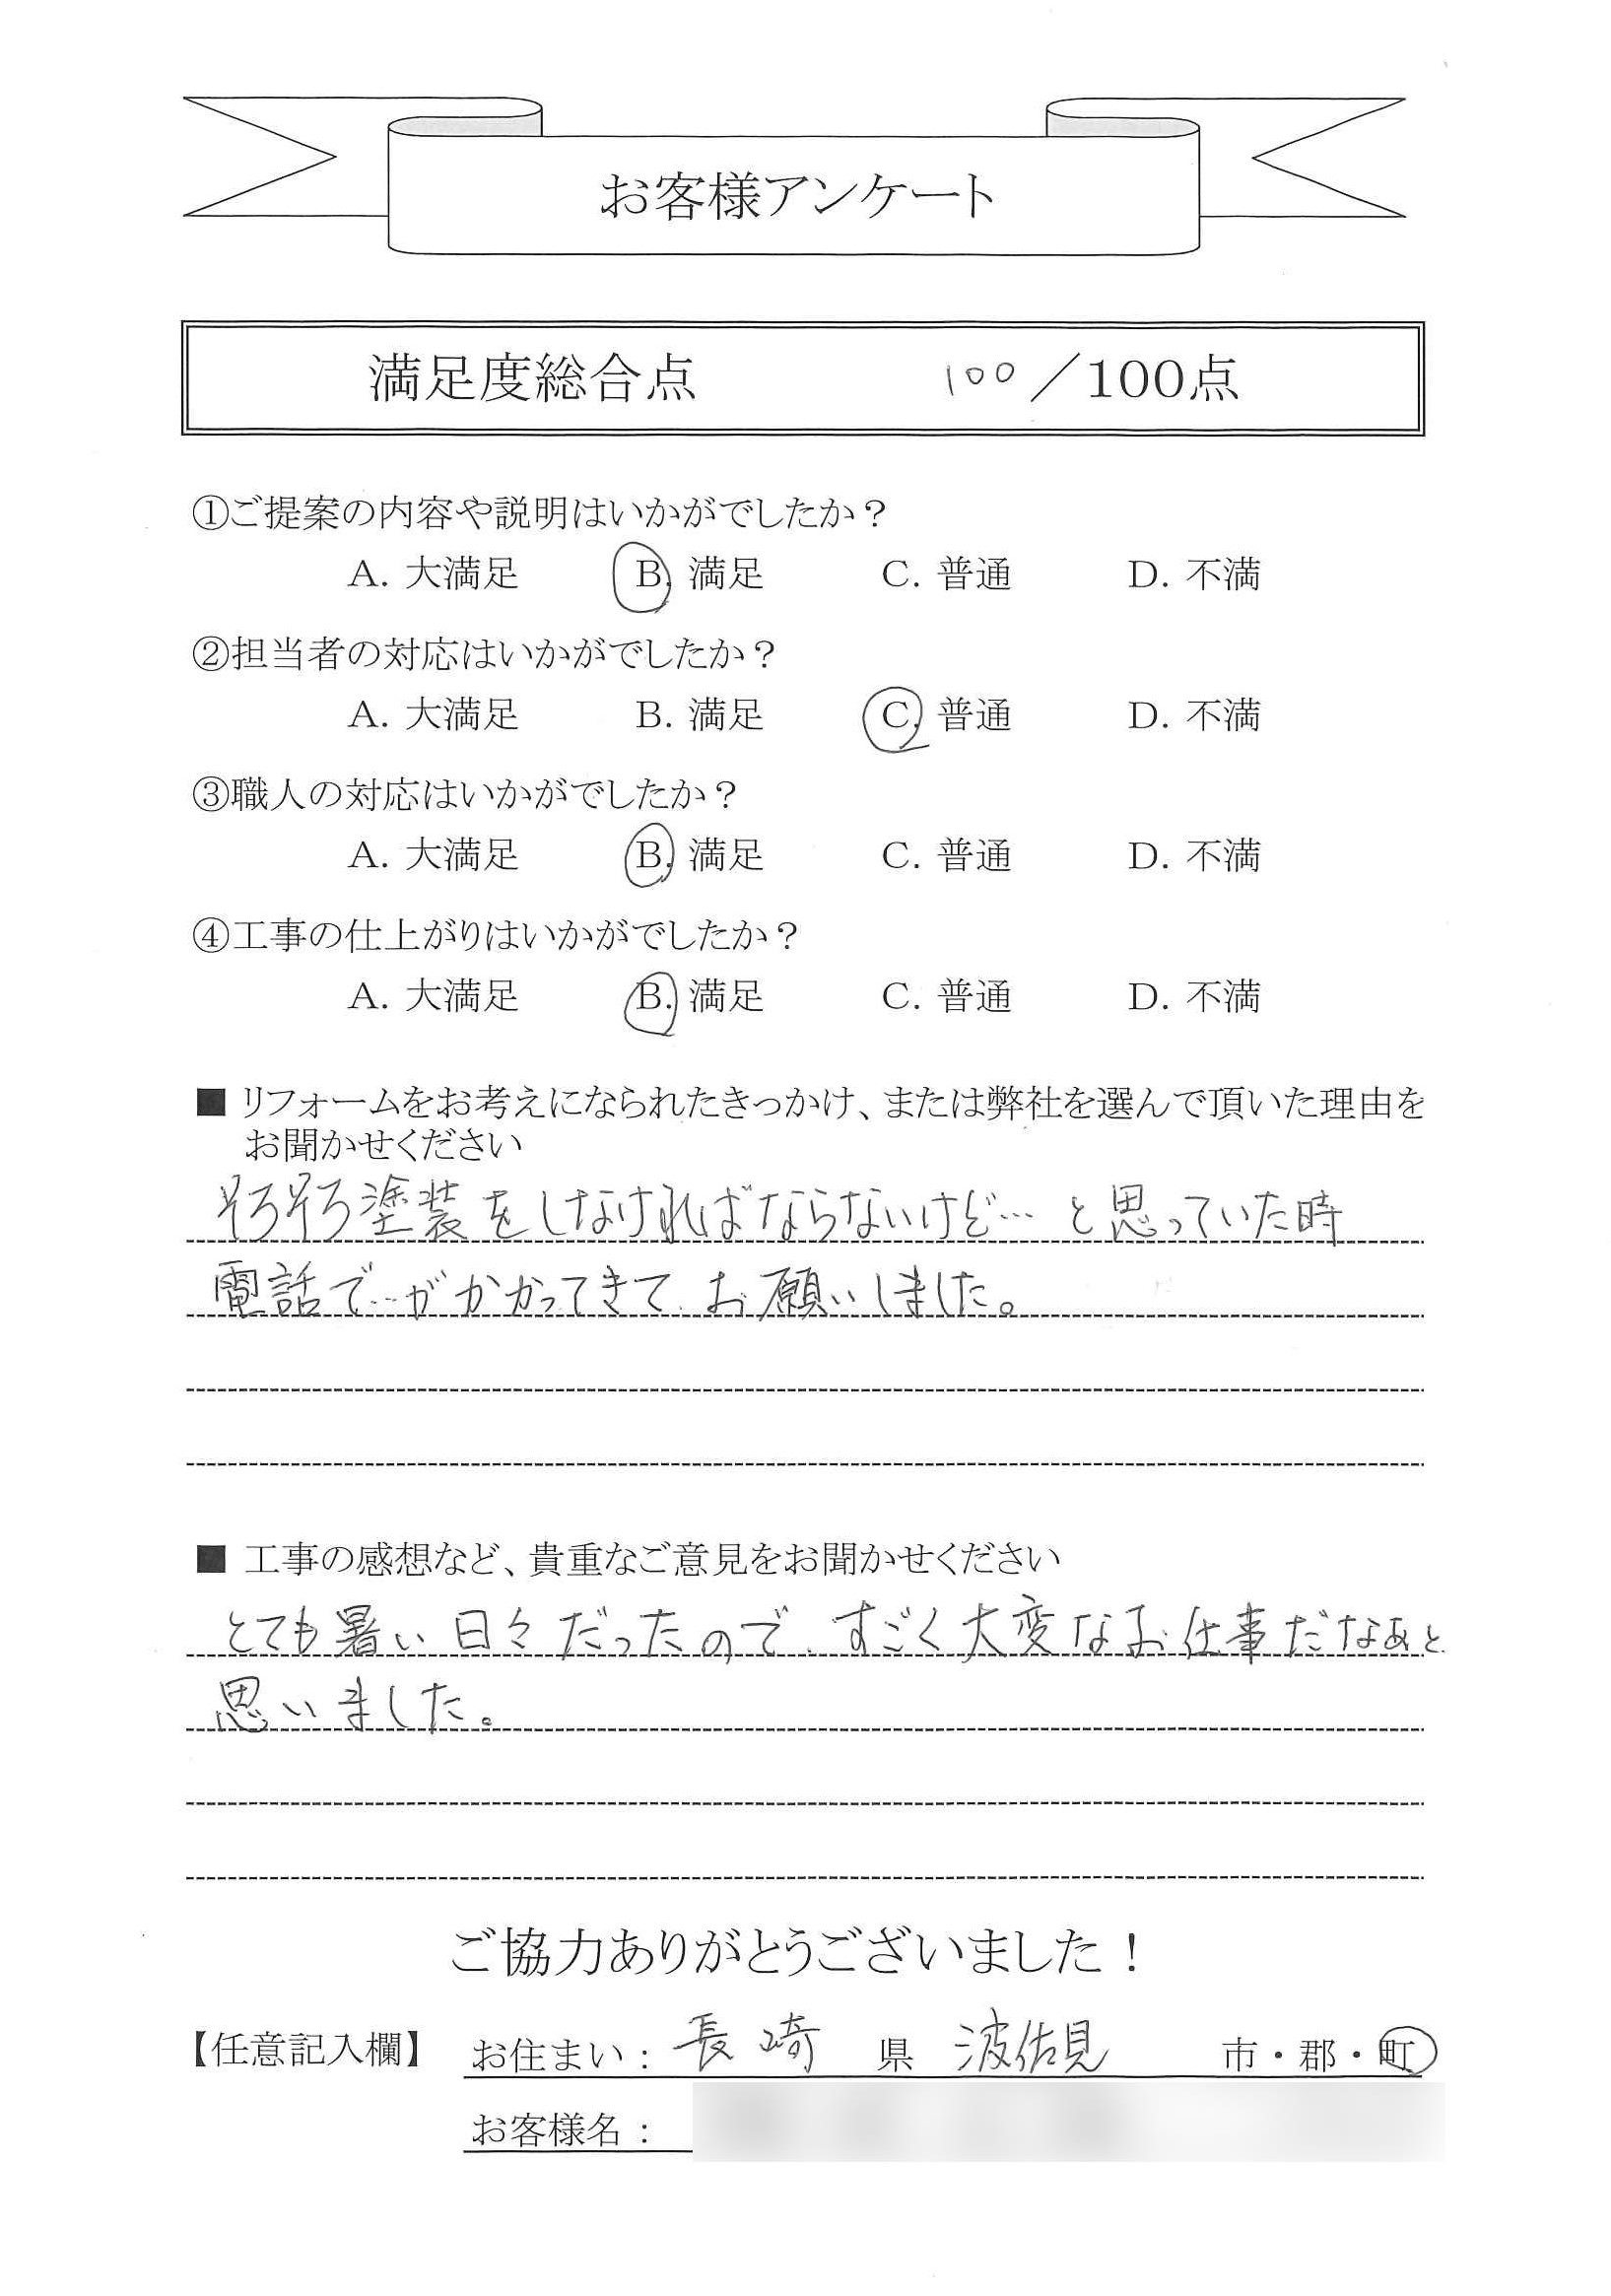 お客様アンケート
満足度総合点 100／100点
①ご提案の内容や説明はいかがでしたか？
A. 大満足 B. 満足 C. 普通 D. 不満
②担当者の対応はいかがでしたか？
A. 大満足 B. 満足 C. 普通 D. 不満
③職人の対応はいかがでしたか？
A. 大満足 B. 満足 C. 普通 D. 不満
④工事の仕上がりはいかがでしたか？
A. 大満足 B. 満足 C. 普通 D. 不満
■ リフォームをお考えになられたきっかけ、または弊社を選んで頂いた理由を
お聞かせください
そろそろ塗装をしなければならないけど… と思っていた時
電話で…がかかってきて、お願いしました。
■ 工事の感想など、貴重なご意見をお聞かせください
とても暑い日々だったので、すごく大変なお仕事だなぁと
思いました。
ご協力ありがとうございました！
【任意記入欄】 お住まい： 長崎 県 波佐見 市・郡・町
お客様名：